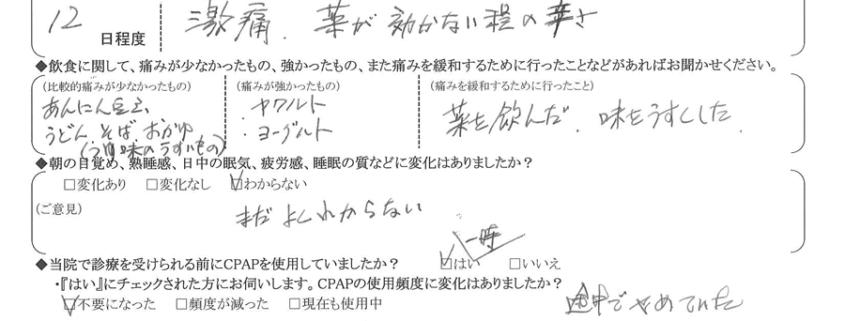 12 日程度 激痛、薬が効かない程の辛さ
◆飲食に関して、痛みが少なかったもの、強かったもの、また痛みを緩和するために行ったことなどがあればお聞かせください。
(比較的痛みが少なかったもの) (痛みが強かったもの) (痛みを緩和するために行ったこと)
あんにん豆フ ・ヤクルト 薬を飲んだ、味をうすくした
うどん そば おかゆ ・ヨーグルト
味のうすいもの)
◆朝の目覚め、熟睡感、日中の眠気、疲労感、睡眠の質などに変化はありましたか?
□変化あり □変化なし ☑わからない
(ご意見) まだよくわからない
一時
◆当院で診療を受けられる前にCPAPを使用していましたか? ☑はい □いいえ
・『はい』にチェックされた方にお伺いします。CPAPの使用頻度に変化はありましたか?
☑不要になった □頻度が減った □現在も使用中 途中でやめていた